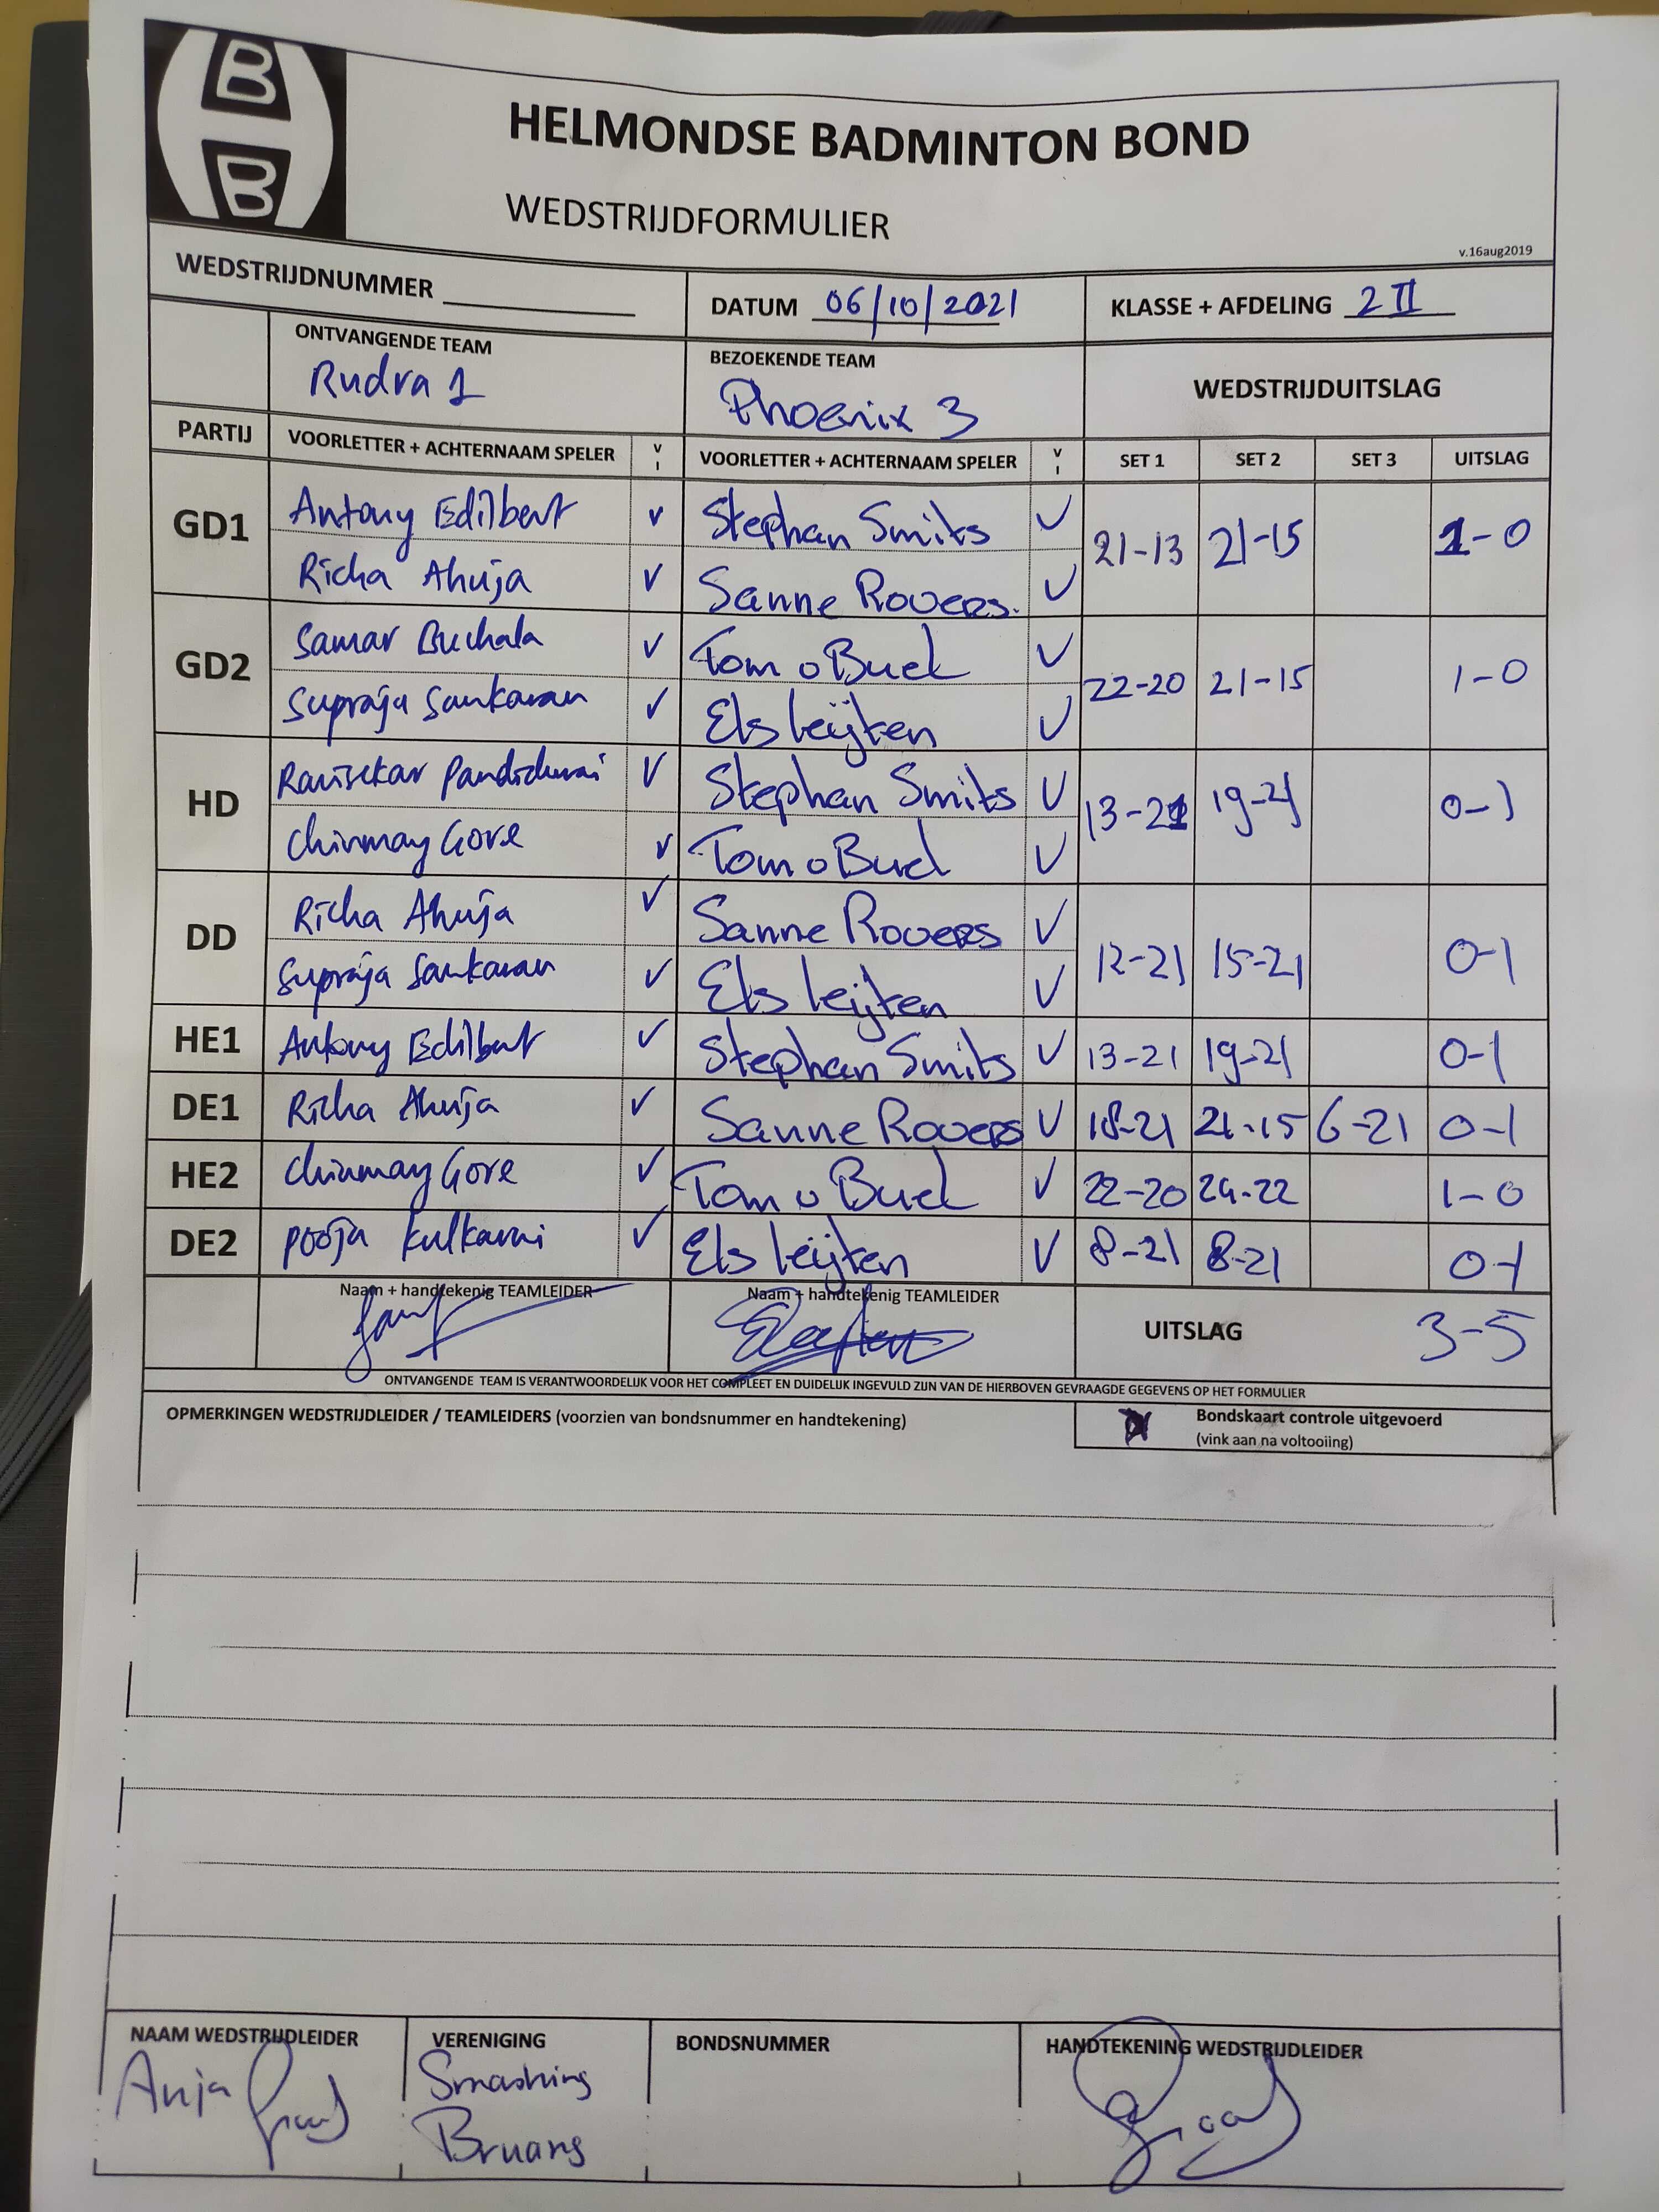 B
B
HELMONDSE BADMINTON BOND
WEDSTRIJDFORMULIER
v.16aug2019
WEDSTRIJDNUMMER
DATUM 06/10/2021
KLASSE + AFDELING 2 II
ONTVANGENDE TEAM
Rudra 1
BEZOEKENDE TEAM
Phoenix 3
WEDSTRIJDUITSLAG
PARTIJ VOORLETTER + ACHTERNAAM SPELER V I VOORLETTER + ACHTERNAAM SPELER V I SET 1 SET 2 SET 3 UITSLAG
GD1 Antony Edilbert v Stephan Smits v 21-13 21-15 1-0
Richa Ahuja v Sanne Rovers. v
GD2 Samar Buchala v Tom v Buel v 22-20 21-15 1-0
Supraja Sankaran v Els Leijten v
HD Ravisekar Pandidurai v Stephan Smits v 13-21 19-21 0-1
Chinmay Gore v Tom v Buel v
DD Richa Ahuja v Sanne Rovers v 12-21 15-21 0-1
Supraja Sankaran v Els Leijten v
HE1 Antony Edilbert v Stephan Smits v 13-21 19-21 0-1
DE1 Richa Ahuja v Sanne Rovers v 18-21 21-15 6-21 0-1
HE2 Chinmay Gore v Tom v Buel v 22-20 24-22 1-0
DE2 Pooja Kulkarni v Els Leijten v 8-21 8-21 0-1
Naam + handtekenig TEAMLEIDER
Naam + handtekenig TEAMLEIDER
UITSLAG 3-5
ONTVANGENDE TEAM IS VERANTWOORDELIJK VOOR HET COMPLEET EN DUIDELIJK INGEVULD ZIJN VAN DE HIERBOVEN GEVRAAGDE GEGEVENS OP HET FORMULIER
OPMERKINGEN WEDSTRIJDLEIDER / TEAMLEIDERS (voorzien van bondsnummer en handtekening)
Bondskaart controle uitgevoerd
(vink aan na voltooiing)
NAAM WEDSTRIJDLEIDER
Anja
VERENIGING
Smashing
Bruans
BONDSNUMMER
HANDTEKENING WEDSTRIJDLEIDER